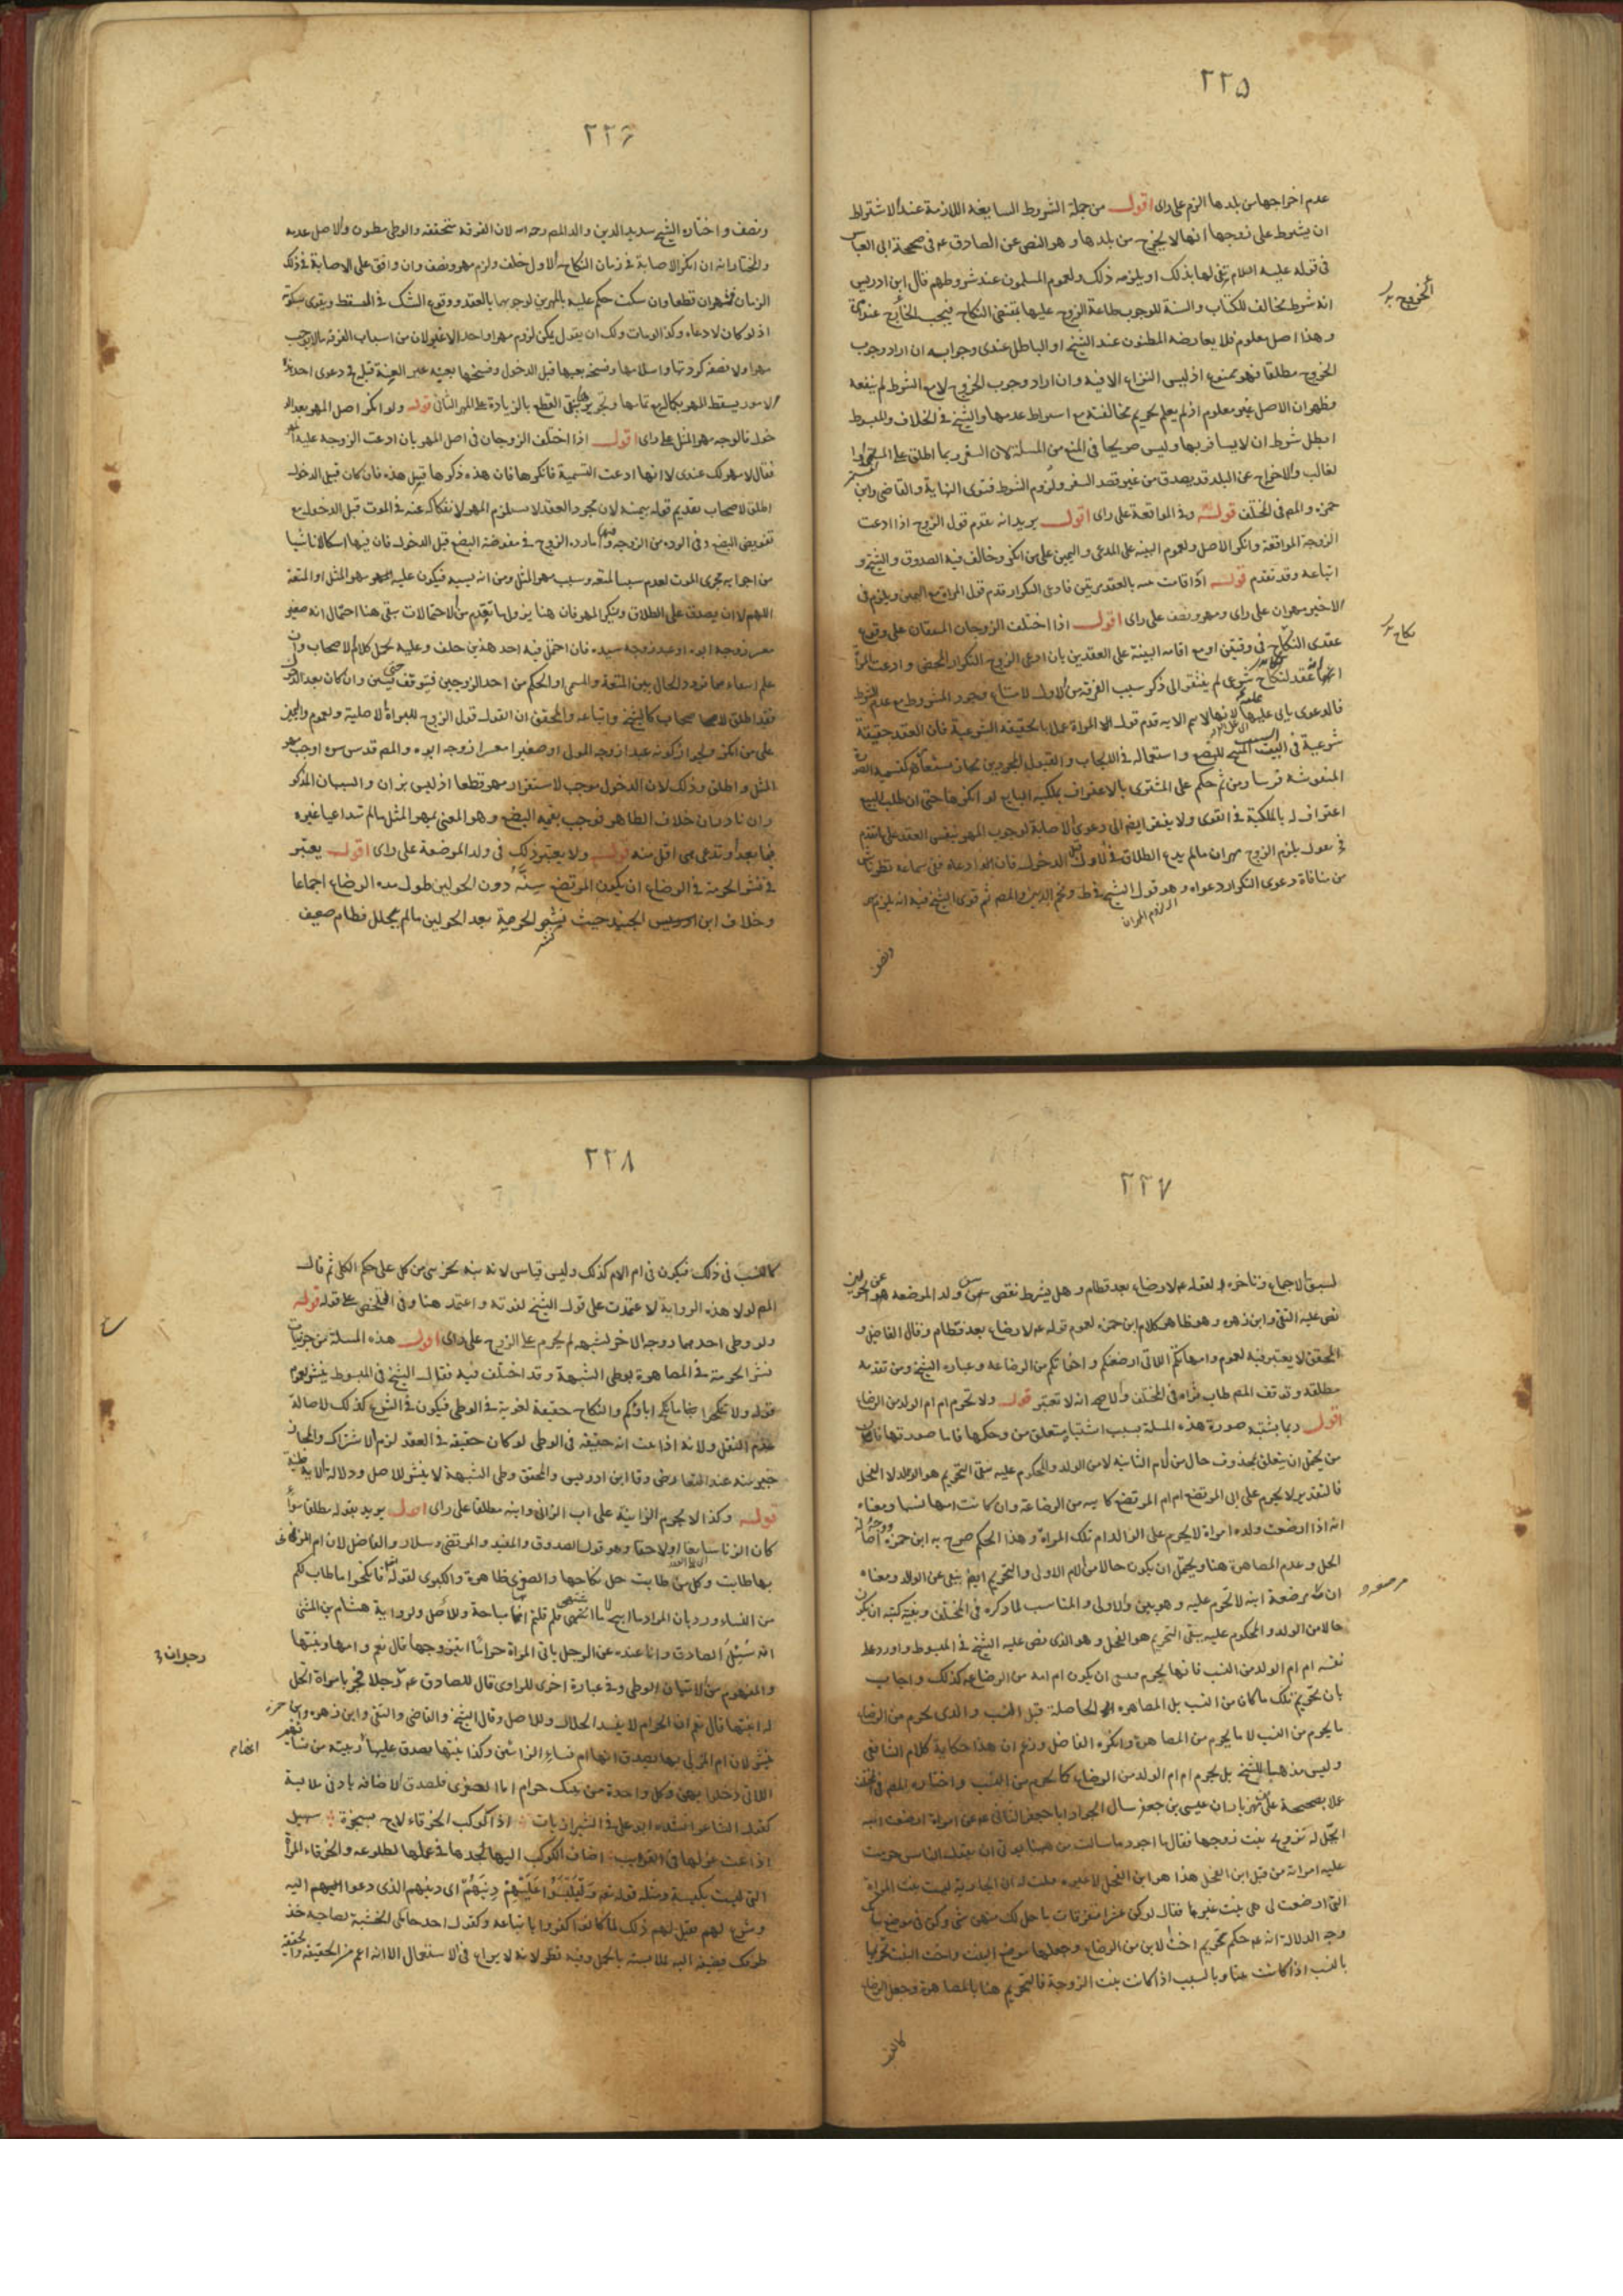 ٢٢٥
عدم اخراجها من بلدها الزم على راى اقول من جملة الشروط السايغه اللازمة عند الاشتراط
ان يشرط على زوجها انها لا يخرج من بلدها وهو النص عن الصادق ع م فى صحيحة ابى العباس
فى قوله عليه السلام يفى لها بذلك او يلزمه ذلك ولعموم المسلمون عند شروطهم قال ابن ادريس
انه شرط مخالف للكتاب والسنة لوجوب طاعة الزوج عليها بمقتضى النكاح فيجب الخارج عنده
وهذا اصل معلوم فلا يعارضه المظنون عند الشيخ او الباطل عندى وجوابه ان اراد وجوب
الخروج مطلقا فهو ممنوع اذ ليس النزاع الا فيه وان اراد وجوب الخروج لا مع الشرط لم ينفعه
وظهر ان الاصل غير معلوم اذ لم يعلم تحريم مخالفته مع اشتراط عدمها والشيخ فى الخلاف والمبسوط
ابطل شرط ان لا يسافر بها وليس صريحا فى المنع من المسئلة لان السفر ربما اطلق على
لغالب والاخراج عن البلد قد يصدق من غير قصد السفر ولزوم الشرط فتوى النهاية والقاضى وابن
حمزه والمص فى المختلف قوله وفى المواقعة على راى اقول يريد انه يقدم قول الزوج اذا ادعت
الزوجة المواقعة وانكر للاصل ولعموم البينه على المدعى واليمين على من انكر وخالف فيه الصدوق والشيخ و
اتباعه وقد تقدم قوله اذا قامت بينه بالعقد مرتين فادعى التكرار قدم قول المراة مع اليمين ويلزم فى
الاخير مهران على راى ومهر ونصف على راى اقول اذا اختلف الزوجان المتفقان على وقوع
عقدى النكاح فى وقتين او مع اقامه البينة على العقدين بان ادعى الزوج التكرار المحض وادعت المراة
انهما عقد لنكاح شرعى لم يفتقر الى ذكر سبب الفرقة من الاول لامتناع وجود المشروط مع عدم الشرط
شرعية فى البيت المبيح للبضع واستعماله فى الايجاب والقبول المجردين مجاز مستعار كتسمية الصورة
المنقوشة فرسا ومن ثم حكم على المشترى بالاعتراف بملكية البايع لو انكرها حتى ان طلب البيع
اعتراف له بالملكية فى اقوى ولا يفتقر ايضا الى دعوى الاصابة لوجوب المهر بنفس العقد على ما تقدم
فح نقول يلزم الزوج مهران مالم يدع الطلاق فى الاول قبل الدخول فان ادعاه ففى سماعه نظر ناش
من منافاة دعوى التكرار دعواه وهو قول الشيخ فى ط ونجم الدين والمص ثم قوى الشيخ فيه انه يلزم مهر
اى لزوم المهران
ونصف
الخروج
نكاح
٢٢٦
ونصف واختاره الشيخ سديد الدين والد المص رحمه الله لان الفرقة متحققة والوطى مظنون والاصل عدمه
والمختار انه ان انكر الاصابة فى زمان النكاح الاول حلف ولزم مهر ونصف وان وافق على الاصابة فى ذلك
الزمان فمهران قطعا وان سكت حكم عليه بالمهرين لوجوبهما بالعقد ووقوع الشك فى المسقط ويقوى بسكوته
اذ لو كان لادعاه وكذا لو مات ولك ان يقول يمكن لزوم مهر واحد لا غير لان من اسباب الفرقة ما لا يوجب
مهرا ولا نصفه كردتها واسلامها وفسخه بعيبها قبل الدخول وفسخها بعيبه غير العنة قبله فى دعوى احد هذه
الامور يسقط المهر بكماله
خول فالوجه مهر المثل على راى اقول اذا اختلف الزوجان فى اصل المهر بان ادعت الزوجة عليه المهر
فقال لا مهر لك عندى لا انها ادعت التسمية فانكرها فان هذه ذكرها قبل هذه فان كان قبل الدخول
اطلق الاصحاب تقديم قوله بيمينه لان مجرد العقد لا يستلزم المهر لانفكاكه عنه فى الموت قبل الدخول مع
من اجرايه مجرى الموت لعدم سبب المتعة وسبب مهر المثل ومن انه بسببه فيكون عليه مهر المثل او المتعة
اللهم الا ان يصدق على الطلاق وينكر المهر فان هنا يزول ما تقدم من الاحتمالات بقى هنا احتمال انه صغير
معسر زوجه ابوه او عبد زوجه سيده فان احتمل فيه احد هذين حلف وعليه يحمل كلام الاصحاب وان
فقد اطلق الاصحاب كالشيخ واتباعه والمحقق ان القول قول الزوج للبراءة الاصلية ولعموم واليمين
على من انكر ولجواز كونه عبدا زوجه المولى او صغيرا معسرا زوجه ابوه والمص قدس سره اوجب مهر
المثل واطلق وذلك لان الدخول موجب لاستقرار مهر قطعا اذ ليس بزان والسببان المذكو
ران نادران خلاف الظاهر فوجب بقيمة البضع وهو المعنى بمهر المثل مالم تدعيا غيره
فيما بعد او تدعى هى اقل منه قوله ولا يعتبر ذلك فى ولد المرضعة على راى اقول يعتبر
فى نشر الحرمة فى الرضاع ان يكون المرتضع سنه دون الحولين طول مدة الرضاع اجماعا
وخلاف ابن الجنيد حيث نشر الحرمة بعد الحولين مالم يتخلل فطام ضعيف
٢٢٧
لسبق الاجماع وتاخره له لقوله ع م لا رضاع بعد فطام وهل يشترط نقص سن ولد المرضعه عن الحولين
نص عليه التقى وابن زهره وهو ظاهر كلام ابن حمزه لعموم قوله ع م لا رضاع بعد فطام وقال الفاضل و
المحقق لا يعتبر فيه لعموم وامهاتكم اللاتى ارضعنكم واخواتكم من الرضاعه وعباره الشيخ ومن تقدمه
مطلقه وتوقف المص طاب ثراه فى المختلف والاصح انه لا تعتبر قوله ولا تحرم ام ام الولد من الرضاع
اقول ربما يشتبه صورة هذه المسئلة بسبب اشتباه متعلق من وحكمها فاما صورتها فان
من يحتمل ان يتعلق بمحذوف حال من الام الثانيه لا من الولد والمحكوم عليه بنفى التحريم هو الولد لا الفحل
فالتقدير لا يحرم على ابى المرتضع ام ام المرتضع كاينه من الرضاعة وان كانت امها نسبا ومعناه
انه اذا ارضعت ولده امراة لا يحرم على الوالد ام تلك المراة وهذا الحكم صرح به ابن حمزه
الحل وعدم المصاهرة هنا ويحتمل ان يكون حالا من الام الاولى والتحريم ايضا ينفى عن الولد ومعناه
ان ام مرضعة ابنه لا تحرم عليه وهو بين والاولى والمناسب لما ذكره فى المختلف وبقية كتبه ان يكون
حالا من الولد والمحكوم عليه بنفى التحريم هو الفحل وهو الذى نص عليه الشيخ فى المبسوط واورد على
نفسه ام ام الولد من النسب فانها تحرم فينبغى ان يكون ام امه من الرضاع كذلك واجاب
بان تحريم تلك ما كان من النسب بل المصاهره الحاصلة قبل النسب والذى يحرم من الرضاع
ما يحرم من النسب لا ما يحرم من المصاهرة وانكره الفاضل وزعم ان هذا حكاية كلام الشافعى
وليس مذهبا للشيخ بل يحرم ام ام الولد من الرضاع كما يحرم من النسب واختاره المص فى المختلف
عملا بصحيحة على بن مهزيار ان عيسى بن جعفر سال الجواد ابا جعفر الثانى ع م عن امراة ارضعت ابنه
ايحل له تزويج بنت زوجها فقال ما اجود ما سالت من ههنا يوتى ان يقول الناس حرمت
عليه امراته من قبل ابن الفحل هذا هو ابن الفحل لا غيره قلت له ان الجارية ليست بنت المراة
التى ارضعت لى هى بنت غيرها فقال لو كن عشرا متفرقات ما حل لك منهن شى وكن فى موضع بناتك
وجه الدلالة انه ع م حكم بتحريم اخت الابن من الرضاع وجعلها موضع البنت واخت البنت تحريمها
بالنسب اذا كانت بنتا وبالسبب اذا كانت بنت الزوجة فالتحريم هنا بالمصاهرة وجعل الرضاع
كالنسب
٢٢٨
كالنسب فى ذلك فيكون فى ام الام كذلك وليس قياس لانه تنبه بجزئى من كلى على حكم الكلى ثم قال
المص لولا هذه الرواية لاعتمدت على قول الشيخ لقوته واعتمد هنا وفى التلخيص على قوله قوله
ولو وطى احدهما زوجه الاخر لشبهه لم يحرم على الزوج على راى اقول هذه المسئلة من جزئيات
نشر الحرمة فى المصاهرة بوطى الشبهة وقد اختلف فيه فقال الشيخ فى المبسوط ينشر لعموم
قوله ولا تنكحوا ما نكح اباؤكم والنكاح حقيقة لغوية فى الوطى فيكون فى الشرع كذلك لاصالة
عدم النقل ولانه اذا ثبت انه حقيقه فى الوطى لو كان حقيقه فى العقد لزم الاشتراك والمجاز
خير منه عند التعارض وقا ابن ادريس والمحقق وطى الشبهة لا ينشر للاصل ودلالة الاية ظنية
قوله وكذا لا يحرم الزانية على اب الزانى وابنه مطلقا على راى اقول يريد بقوله مطلقا سواء
كان الزنا سابقا او لاحقا وهو قول الصدوق والمفيد والمرتضى وسلار والفاضل لان ام المزنى
بها طابت وكل من طابت حل نكاحها والصغرى ظاهرة والكبرى لقوله تعالى فانكحوا ما طاب لكم
انه سئل الصادق وانا عنده عن الرجل ياتى المراة حراما ايتزوجها قال نعم وامها وبنتها
والمفهوم من الاتيان الوطى وفى عبارة اخرى للراوى قال للصادق ع م رجلا فجر بامراة اتحل
له ابنتها قال نعم ان الحرام لا يفسد الحلال وللاصل وقال الشيخ والقاضى والتقى وابن زهره وابن حمزه
ينشر لان ام المزنى بها يصدق انها ام نساء الزانى وكذا بنتها يصدق عليها ربيبته من نسايه
اللاتى دخل بهن وكل واحدة من تينك حرام اما الصغرى فلصدق الاضافه بادنى ملابسة
كقول الشاعر انشده ابو على فى الشيرازيات اذا كوكب الخرقاء لاح بسحرة سهيل
اذاعت غزلها فى القرايب اضاف الكوكب اليها لجدها فى عملها لطلوعه والخرقاء المراة
التى ليست بكيسة ومثله قوله تع وليلبسوا عليهم دينهم اى دينهم الذى دعوا اليهم اليه
وشرع لهم فقيل لهم ذلك لما كانوا كفروا باتباعه وكقول احد حاملى الخشبة لصاحبه خذ
طرفك فيضيفه اليه لملابسته بالحمل وفيه نظر لانه لا نزاع فى الاستعمال الا انه اعم من الحقيقة والحقيقه